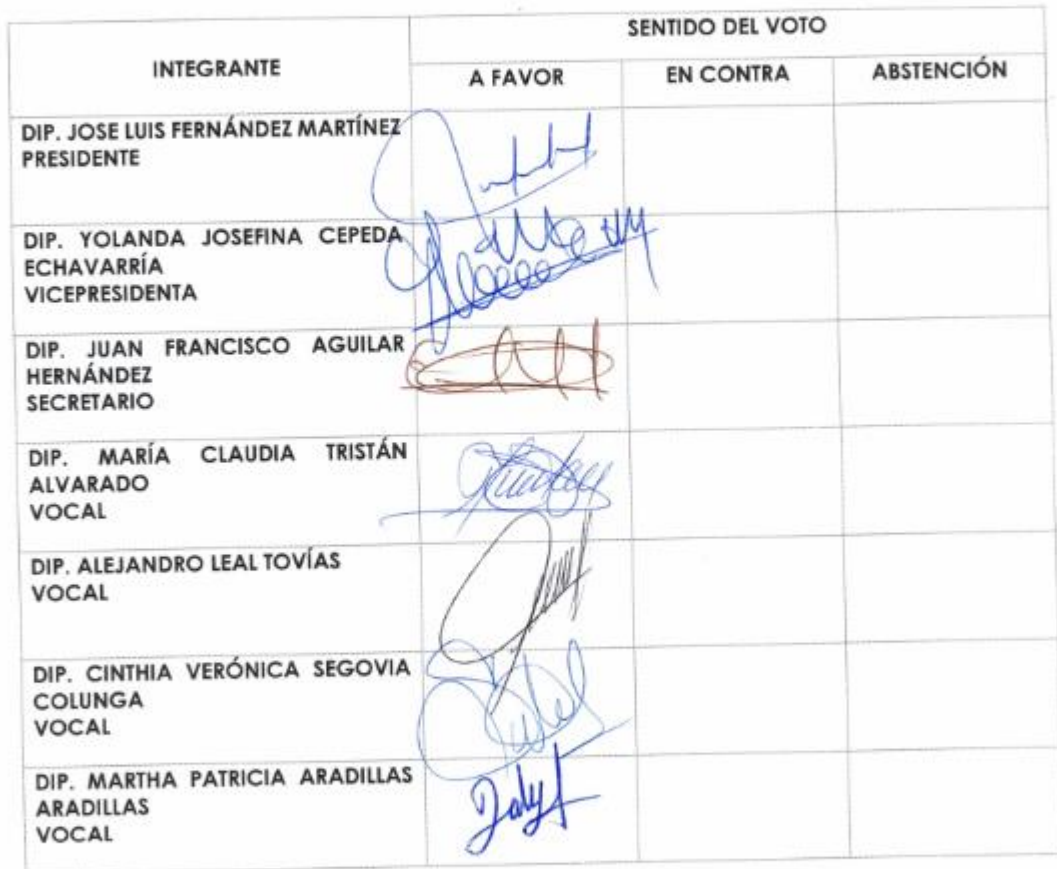 SENTIDO DEL VOTO
INTEGRANTE
A FAVOR
EN CONTRA
ABSTENCIÓN
DIP. JOSE LUIS FERNÁNDEZ MARTÍNEZ
PRESIDENTE
DIP. YOLANDA JOSEFINA CEPEDA
ECHAVARRÍA
VICEPRESIDENTA
DIP. JUAN FRANCISCO AGUILAR
HERNÁNDEZ
SECRETARIO
DIP. MARÍA CLAUDIA TRISTÁN
ALVARADO
VOCAL
DIP. ALEJANDRO LEAL TOVÍAS
VOCAL
DIP. CINTHIA VERÓNICA SEGOVIA
COLUNGA
VOCAL
DIP. MARTHA PATRICIA ARADILLAS
ARADILLAS
VOCAL